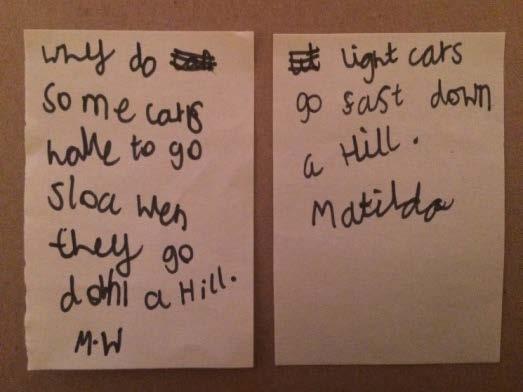 why do
some cars
have to go
sloa wen
they go
down a Hill.
M.W
light cars
go fast down
a Hill.
Matilda